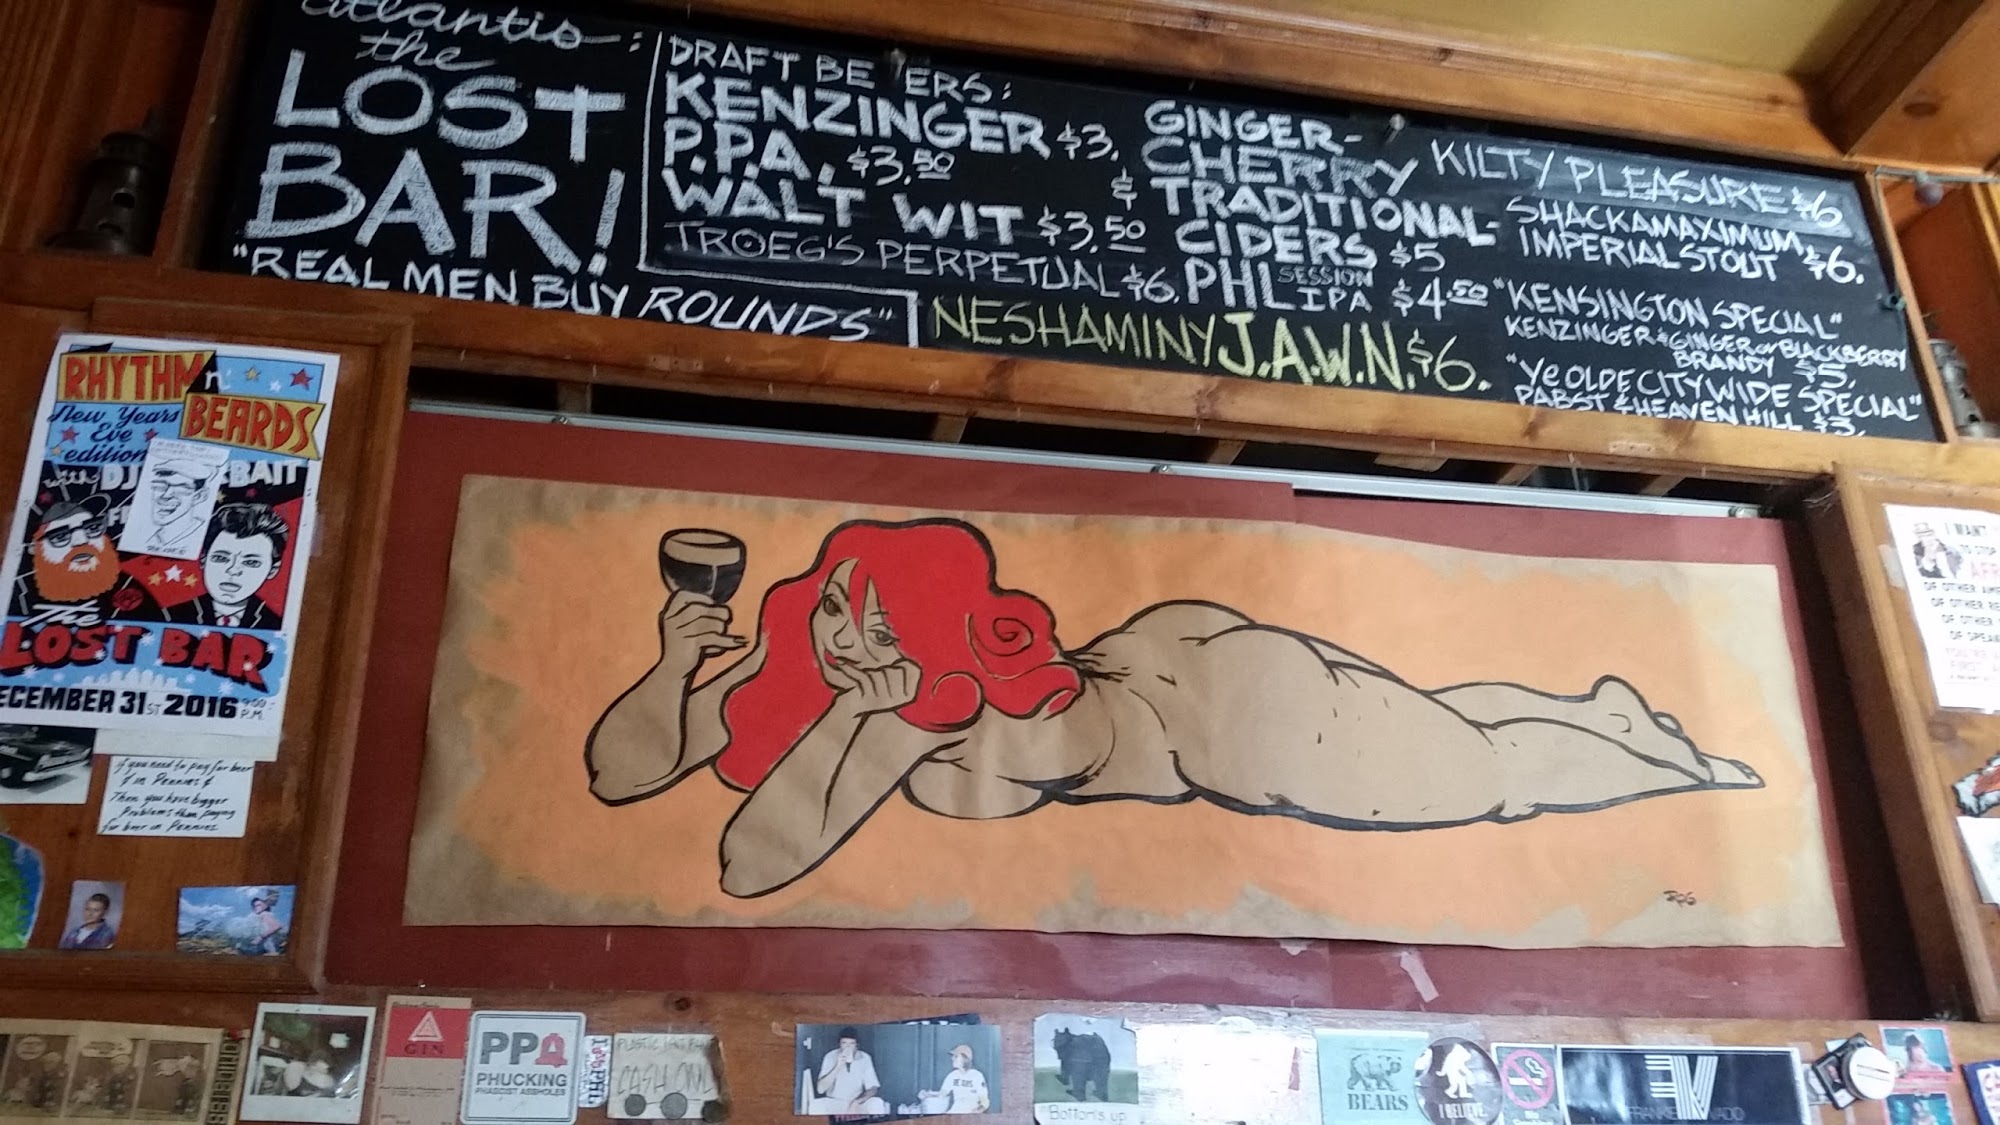 atlantis:
the
LOST
BAR!
"REAL MEN BUY ROUNDS"
DRAFT BEERS:
KENZINGER $3.
P.P.A. $3.50
WALT WIT $3.50
TROEG'S PERPETUAL $6.
NESHAMINY J.A.W.N. $6.
&
GINGER-
CHERRY
TRADITIONAL-
CIDERS $5
PHL SESSION IPA $4.50
KILTY PLEASURE $6
SHACKAMAXIMUM
IMPERIAL STOUT $6.
"KENSINGTON SPECIAL"
KENZINGER & GINGER or BLACKBERRY
BRANDY $5.
"Ye OLDE CITY WIDE SPECIAL"
PABST & HEAVEN HILL $3.
RHYTHM n'
BEARDS
New Years
Eve
edition
with DJ
BAIT
The
LOST BAR
DECEMBER 31ST 2016 9:00 P.M.
if you need to pay for beer
in Pennies
Then you have bigger
Problems than paying
for beer in Pennies
I WANT
TO STOP
OF OTHER
OF OTHER
OF
GIN
PPA
PHUCKING
PHASCIST ASSHOLES
PLASTIC
CASH
Bottoms up
BEARS
I BELIEVE